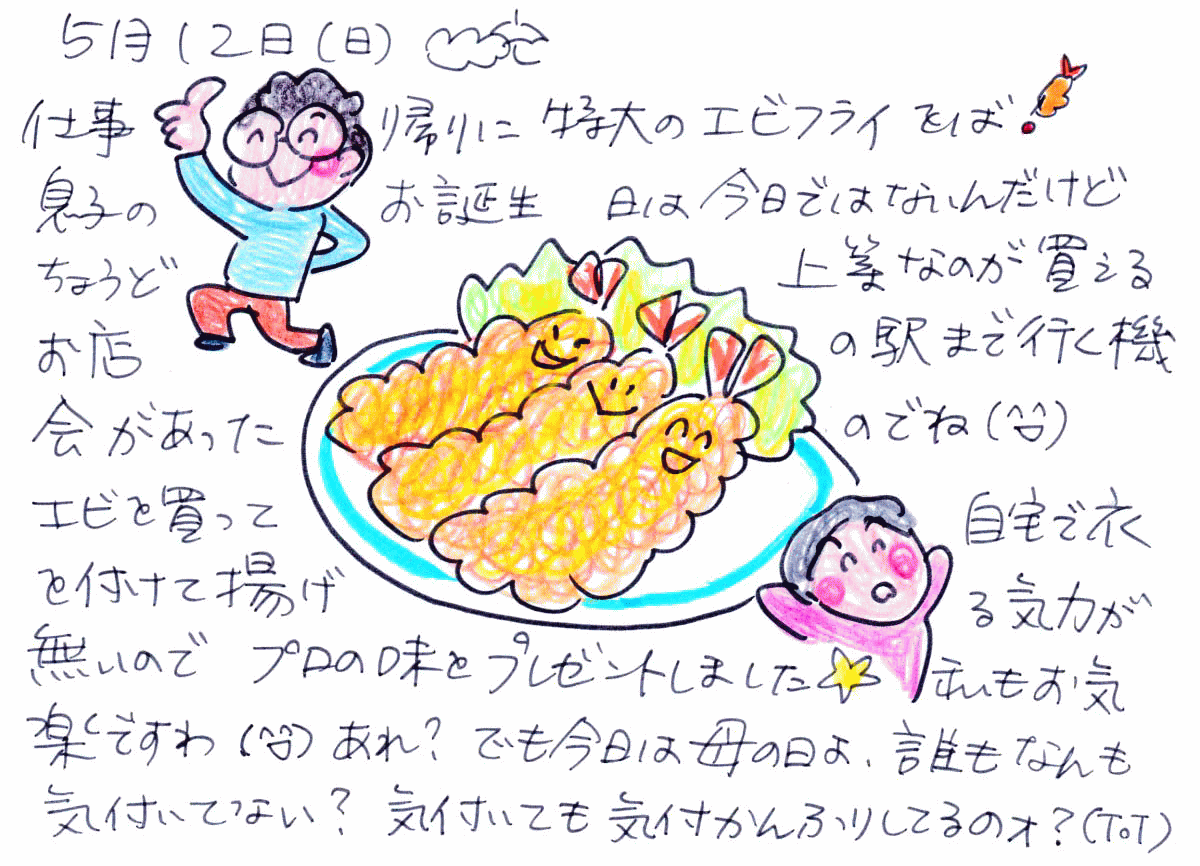 5月12日(日)
仕事帰りに 特大のエビフライをば
息子のお誕生日は今日ではないんだけど
ちょうど上等なのが買える
お店の駅まで行く機
会があったのでね(^^)
エビを買って自宅で衣
を付けて揚げる気力が
無いので プロの味をプレゼントしました☆ 私もお気
楽ですわ(^^)あれ?でも今日は母の日よ、誰もなんも
気付いてない?気付いても気付かんふりしてるのォ?(ToT)